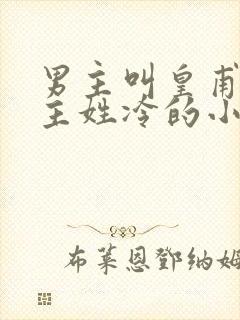 男主叫皇甫
主姓冷的小
布莱恩鄧纳姆